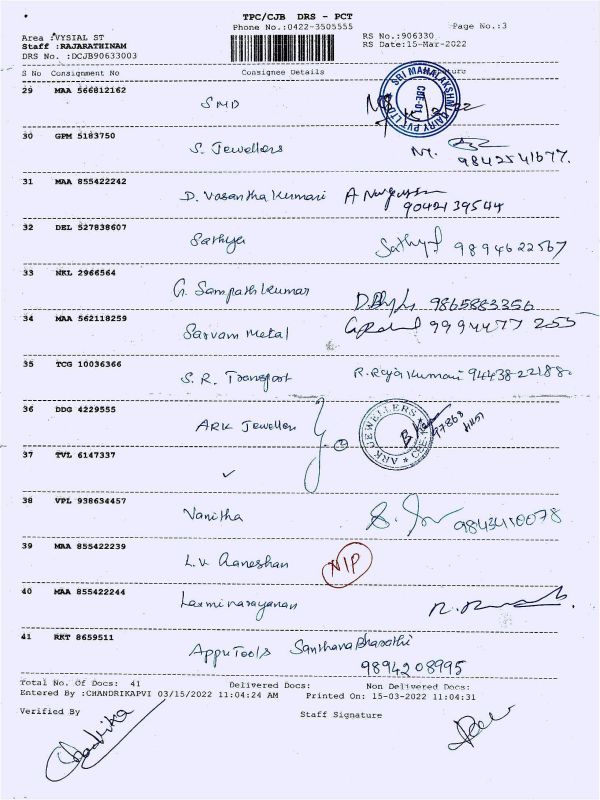 TPC/CJB DRS - PCT
Phone No.:0422-3505555
Page No.:3
Area :VYSIAL ST
RS No.:906330
Staff :RAJARATHINAM
RS Date:15-Mar-2022
DRS No. :DCJB90633003
S No Consignment No Consignee Details
29 MAA 566812162 SMD
SRI MAHALAKSHMI DAIRY PVT LTD
CBE-01
30 GPM 5183750 S. Jewellers
9842541677.
31 MAA 855422242 D. Vasantha Kumari
9042139544
32 DEL 527838607 Sathya 9894622567
33 NKL 2966564 G. Sampath Kumar 9865883356
34 MAA 562118259 Sarvam Metal 9994477 255
35 TCG 10036366 S.R. Transport R. Raja Kumari 9443822188
36 DDG 4229555 ARK Jewellers
ARK JEWELLERS
37 TVL 6147337 ✓
38 VPL 938634457 Vanitha 9843410078
39 MAA 855422239 L.V. Ganeshan NIP
40 MAA 855422244 Laxminarayanan
41 RKT 8659511 Appu Tools Santhana Bharathi
9894208995
Total No. Of Docs: 41 Delivered Docs: Non Delivered Docs:
Entered By :CHANDRIKAPVI 03/15/2022 11:04:24 AM Printed On: 15-03-2022 11:04:31
Verified By Staff Signature
Chandrika